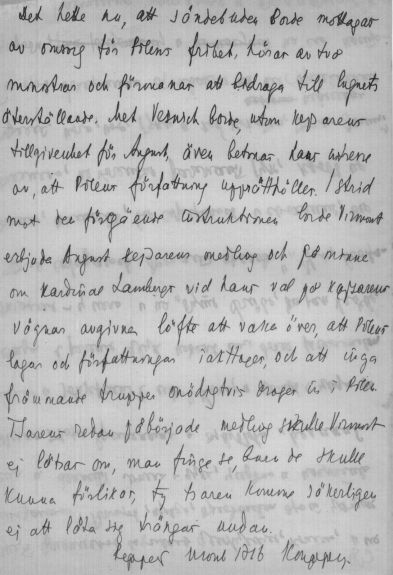 Det hette nu, att sändebuden borde mottagas
av omsorg för Polens frihet, höras av två
ministrar och förmanas att bidraga till lugnets
återställande. Met borde, utom kejsarens
tillgivenhet för August, även betonas hans intresse
av, att Polens författning upprätthålles. I strid
mot den föregående instruktionen borde Virmont
erbjuda August kejsarens medling och påminna
om Kardinal Lambergs vid hans val på kejsarens
vägnar avgivna löfte att vaka över, att Polens
lagar och författningar iakttagas, och att inga
främmande trupper onödigtvis drages in i Polen.
Tsarens redan påbörjade medling skulle Virmont
ej låtsas om, man finge se, huru de skulle
kunna förlikas, ty tsaren komme säkerligen
ej att låta sig trängas undan.
1716